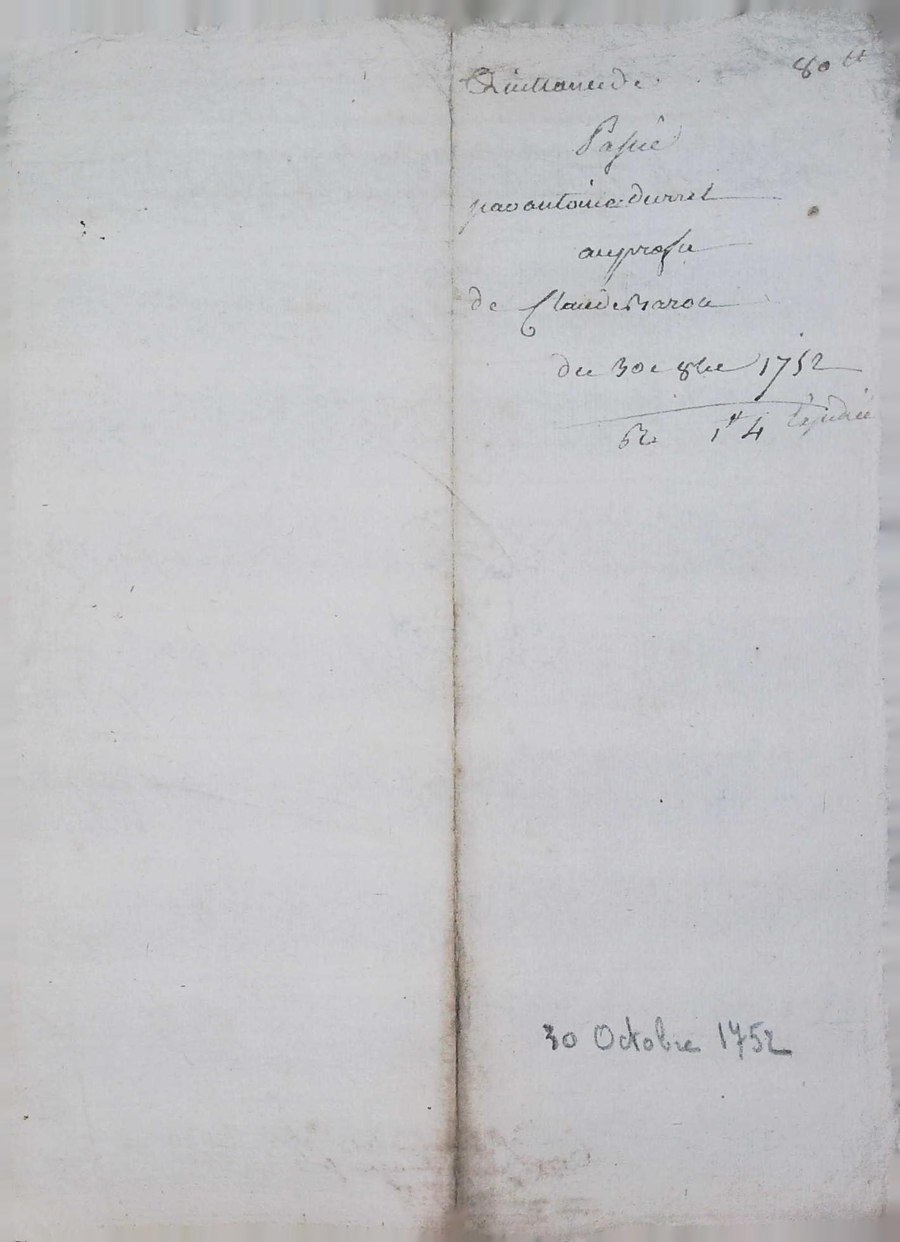 Quittance de 80  tt
Passée
par antoine durret
au profit
de Claude Baron
du 30e 8bre 1752
1 tt 4
30 Octobre 1752